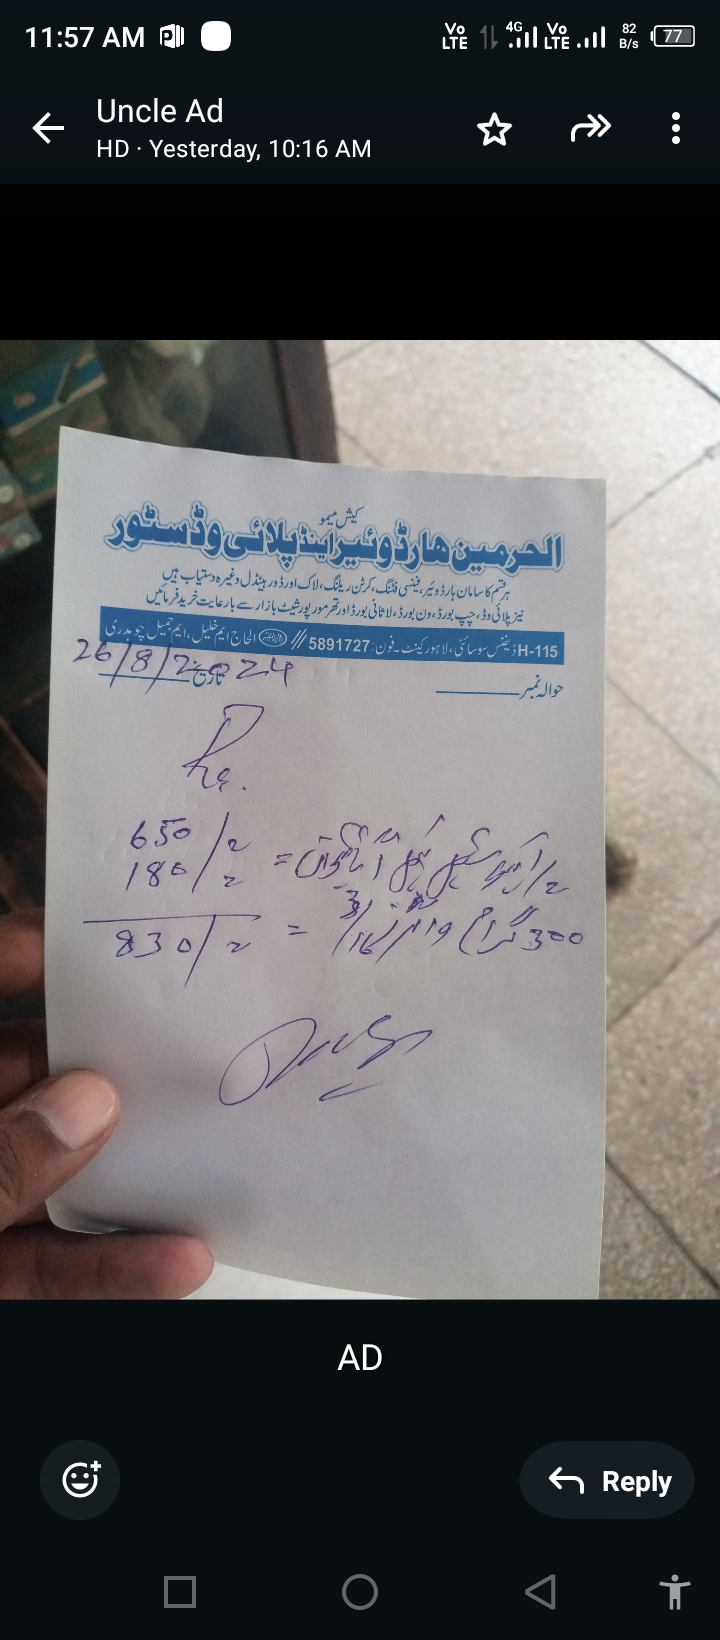 11:57 AM
Vo LTE 4G Vo LTE 82 B/s 77
Uncle Ad
HD · Yesterday, 10:16 AM
کیش میمو
الحرمین ہارڈوئیر اینڈ پلائی وڈ سٹور
ہر قسم کا سامان ہارڈوئیر، فینسی فٹنگ، کرٹن ریلنگ، لاک اور ڈور ہینڈل وغیرہ دستیاب ہیں
نیز پلائی وڈ، چپ بورڈ، ون بورڈ، لاثانی بورڈ اور تھرمورپور شیٹ بازار سے بارعایت خرید فرمائیں
H-115 ڈیفنس سوسائٹی، لاہور کینٹ۔ فون: 5891727 // الحاج ایم خلیل، ایم جمیل چوہدری
حوالہ نمبر
تاریخ 26/8/2024
Rs.
650/=
180/=
830/=
300 گرام
AD
Reply